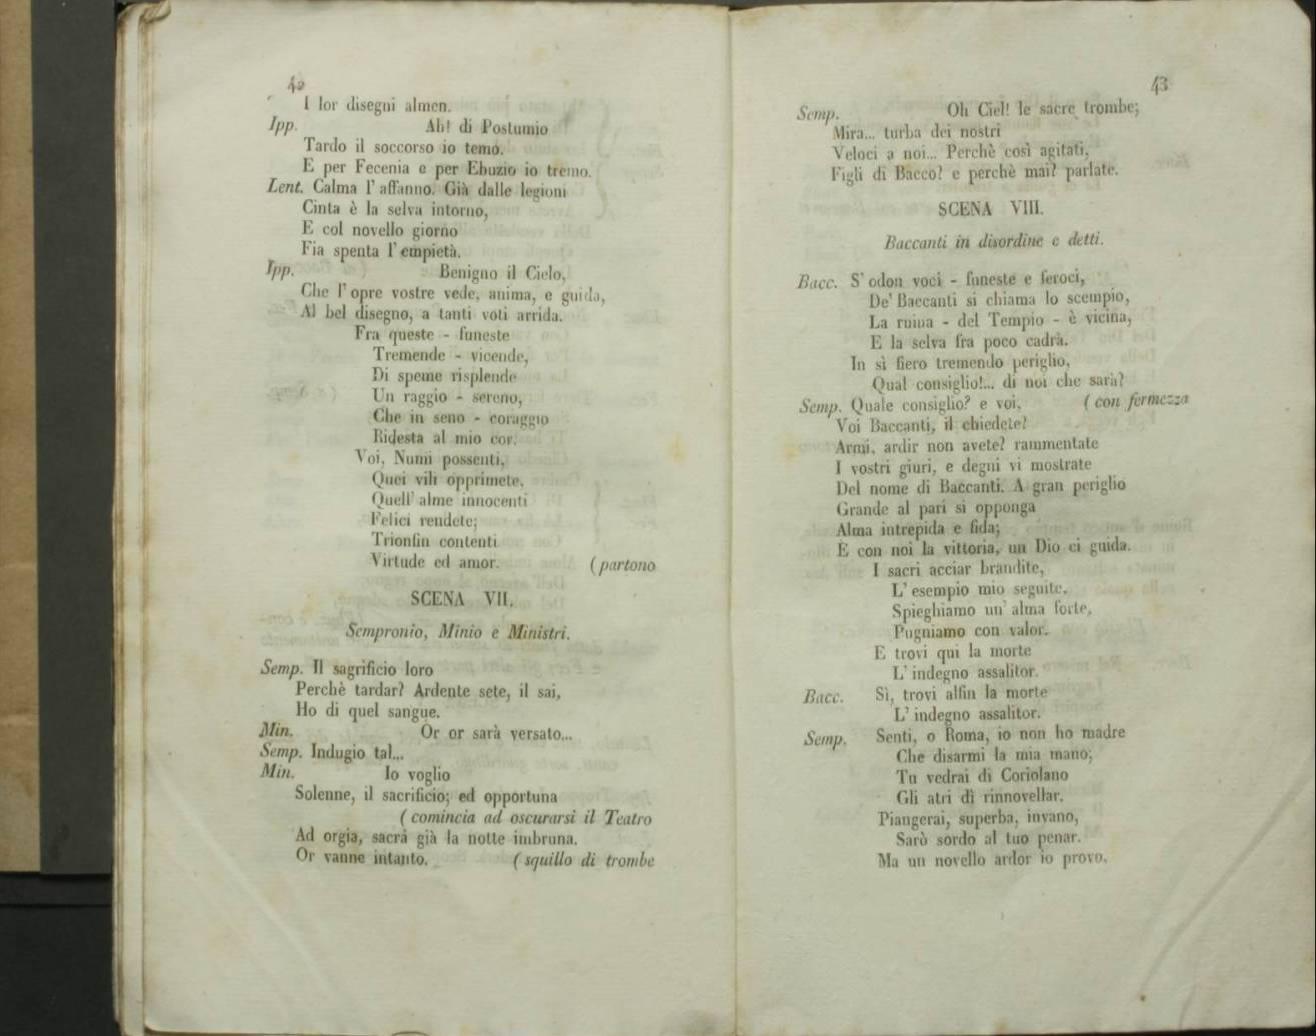 42
I lor disegni almen.
Ipp. Ah! di Postumio
Tardo il soccorso io temo.
E per Fecenia e per Ebuzio io tremo.
Lent. Calma l'affanno. Già dalle legioni
Cinta è la selva intorno,
E col novello giorno
Fia spenta l'empietà.
Ipp. Benigno il Cielo,
Che l'opre vostre vede, anima, e guida,
Al bel disegno, a tanti voti arrida.
Fra queste - funeste
Tremende - vicende,
Di speme risplende
Un raggio - sereno,
Che in seno - coraggio
Ridesta al mio cor.
Voi, Numi possenti,
Quei vili opprimete,
Quell'alme innocenti
Felici rendete;
Trionfin contenti
Virtude ed amor. (partono
SCENA VII.
Sempronio, Minio e Ministri.
Semp. Il sagrificio loro
Perchè tardar? Ardente sete, il sai,
Ho di quel sangue.
Min. Or or sarà versato...
Semp. Indugio tal...
Min. Io voglio
Solenne, il sacrificio; ed opportuna
(comincia ad oscurarsi il Teatro
Ad orgia, sacra già la notte imbruna.
Or vanne intanto. (squillo di trombe
43
Semp. Oh Ciel! le sacre trombe;
Mira... turba dei nostri
Veloci a noi... Perchè così agitati,
Figli di Bacco? e perchè mai? parlate.
SCENA VIII.
Baccanti in disordine e detti.
Bacc. S'odon voci - funeste e feroci,
De' Baccanti si chiama lo scempio,
La ruina - del Tempio - è vicina,
E la selva fra poco cadrà.
In sì fiero tremendo periglio,
Qual consiglio!... di noi che sarà?
Semp. Quale consiglio? e voi, (con fermezza
Voi Baccanti, il chiedete?
Armi, ardir non avete? rammentate
I vostri giuri, e degni vi mostrate
Del nome di Baccanti. A gran periglio
Grande al pari si opponga
Alma intrepida e fida;
È con noi la vittoria, un Dio ci guida.
I sacri acciar brandite,
L'esempio mio seguite,
Spieghiamo un'alma forte,
Pugniamo con valor.
E trovi qui la morte
L'indegno assalitor.
Bacc. Sì, trovi alfin la morte
L'indegno assalitor.
Semp. Senti, o Roma, io non ho madre
Che disarmi la mia mano;
Tu vedrai di Coriolano
Gli atri dì rinnovellar.
Piangerai, superba, invano,
Sarò sordo al tuo penar.
Ma un novello ardor io provo,